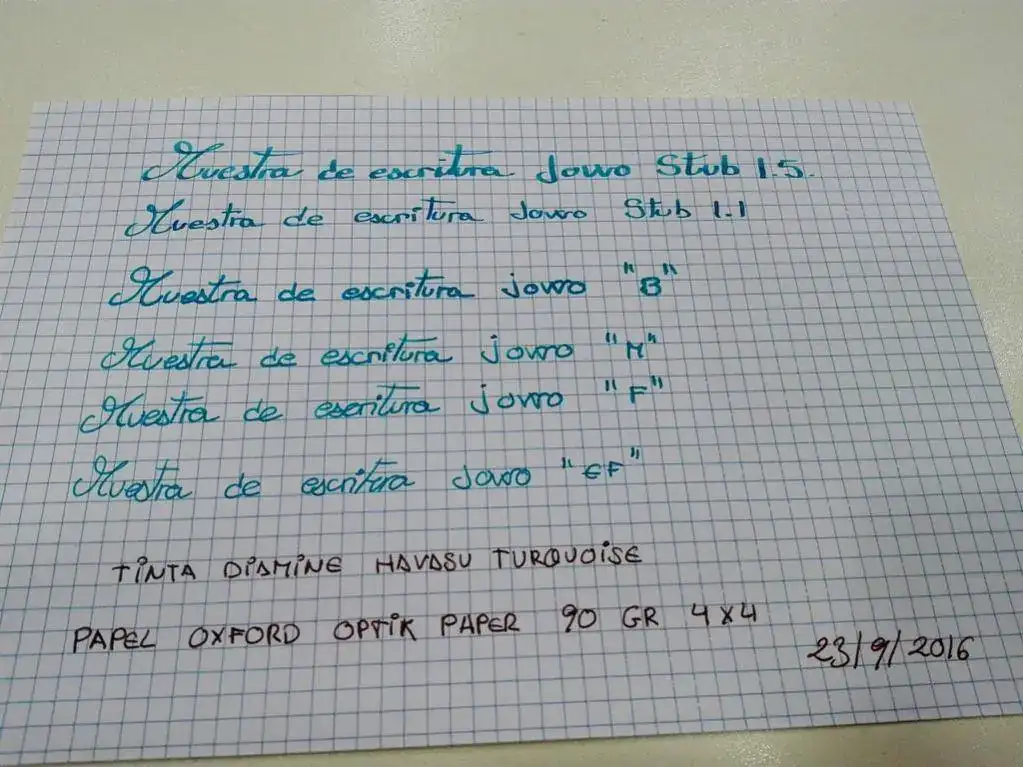 Muestra de escritura Jowo Stub 1.5.
Muestra de escritura Jowo Stub 1.1
Muestra de escritura jowo "B"
Muestra de escritura jowo "M"
Muestra de escritura jowo "F"
Muestra de escritura Jowo "EF"
TINTA DIAMINE HAVASU TURQUOISE
PAPEL OXFORD OPTIK PAPER 90 GR 4x4
23/9/2016